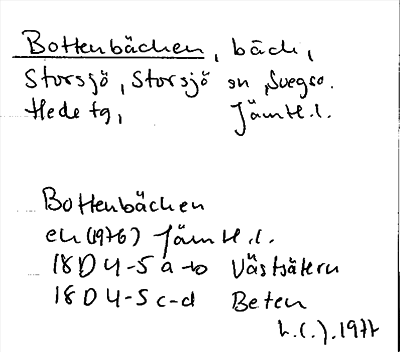 Bottenbäcken, bäck,
Storsjö, Storsjö sn, Svegso.
Hede tg, Jämtl.l.
Bottenbäcken
ek (1976) Jämtl.l.
18D 4-5 a-b Västsätern
18D 4-5 c-d Beten
1977